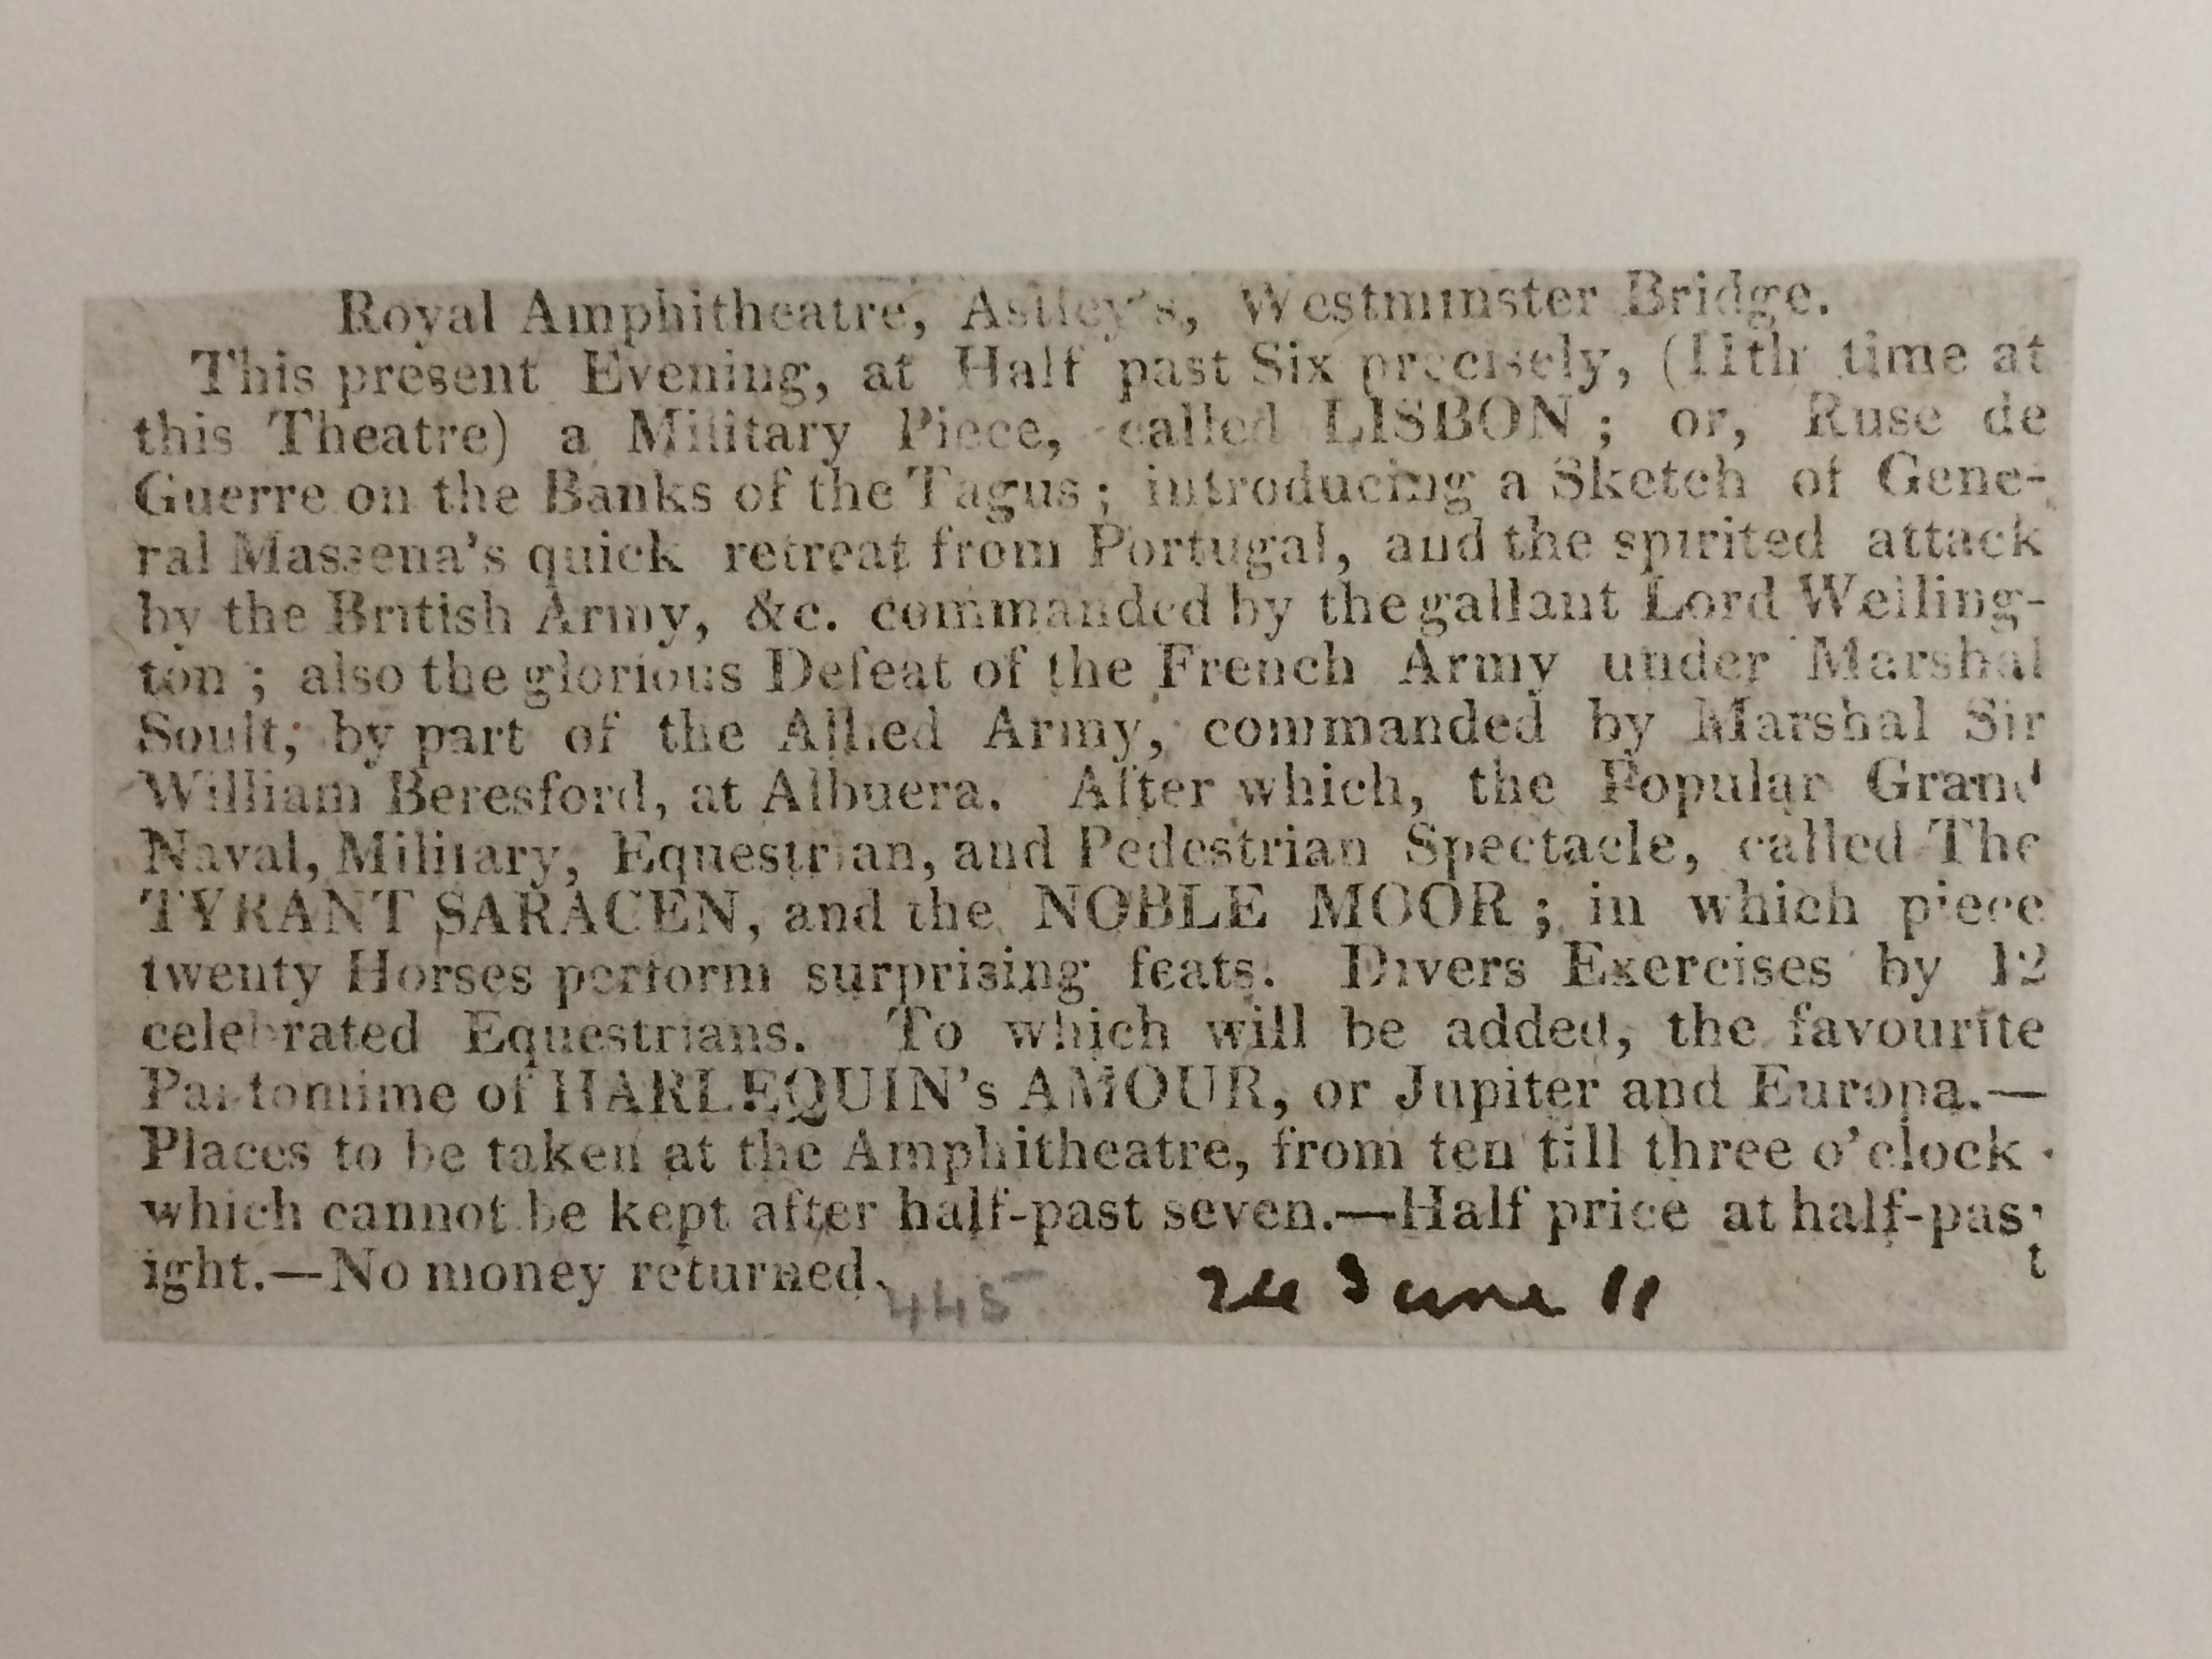 Royal Amphitheatre, Astley's, Westminster Bridge.
This present Evening, at Half past Six precisely, (11th time at
this Theatre) a Military Piece, called LISBON ; or, Ruse de
Guerre on the Banks of the Tagus ; introducing a Sketch of Gene-
ral Massena's quick retreat from Portugal, and the spirited attack
by the British Army, &c. commanded by the gallant Lord Welling-
ton ; also the glorious Defeat of the French Army under Marshal
Soult, by part of the Allied Army, commanded by Marshal Sir
William Beresford, at Albuera. After which, the Popular Grand
Naval, Military, Equestrian, and Pedestrian Spectacle, called The
TYRANT SARACEN, and the NOBLE MOOR ; in which piece
twenty Horses perform surprising feats. Divers Exercises by 12
celebrated Equestrians. To which will be added, the favourite
Pantomime of HARLEQUIN's AMOUR, or Jupiter and Europa.—
Places to be taken at the Amphitheatre, from ten till three o'clock
which cannot be kept after half-past seven.—Half price at half-pas
ight.—No money returned. t
445 June 11